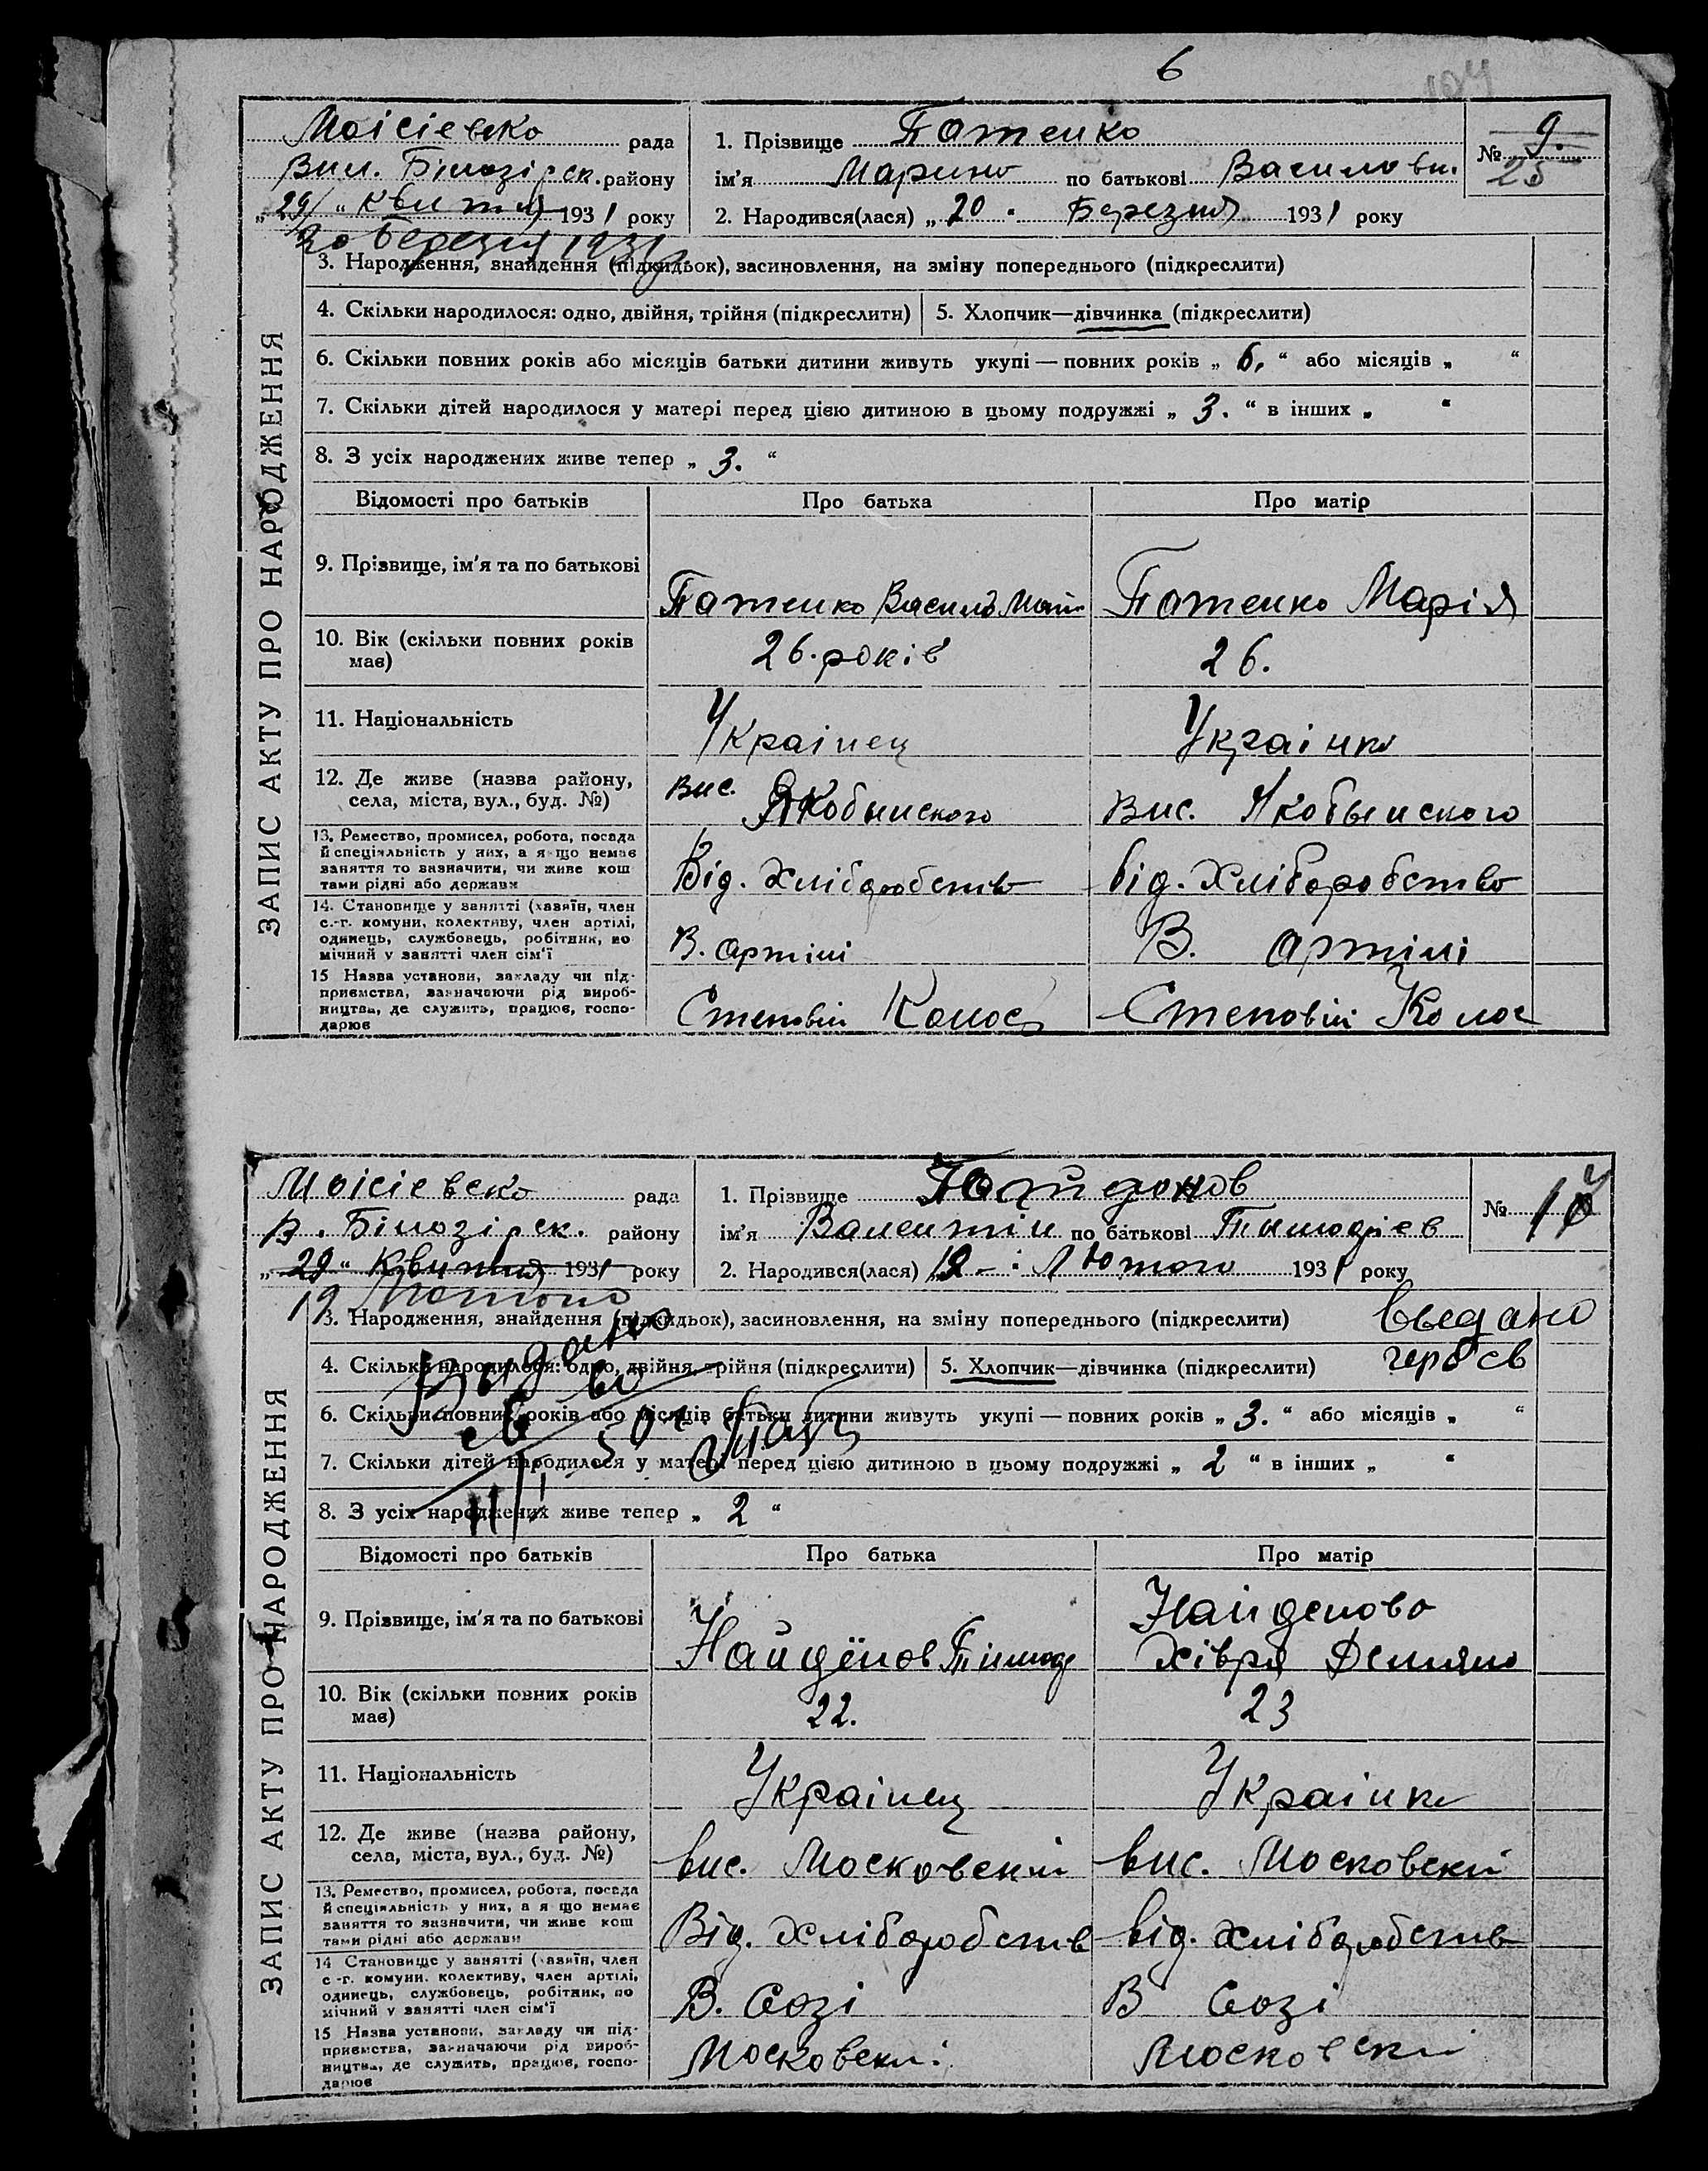 6
Моісієвско рада
Вил. Білозірск. району
„29/“ Квитня 1931 року
20 березня 1931 р
1. Прізвище Патенко
ім'я Марино по батькові Василовн.
2. Народився(лася) „20. Березня 1931 року
№ 9.
25
ЗАПИС АКТУ ПРО НАРОДЖЕННЯ
3. Народження, знайдення (підкидьок), засиновлення, на зміну попереднього (підкреслити)
4. Скільки народилося: одно, двійня, трійня (підкреслити) 5. Хлопчик—дівчинка (підкреслити)
6. Скільки повних років або місяців батьки дитини живуть укупі — повних років „ 6. “ або місяців „ “
7. Скільки дітей народилося у матері перед цією дитиною в цьому подружжі „ 3. “ в інших „ “
8. З усіх народжених живе тепер „ 3. “
Відомості про батьків Про батька Про матір
9. Прізвище, ім'я та по батькові
Патенко Василь Патенко Марія
10. Вік (скільки повних років
має)
26. років 26.
11. Національність Украінец Украінка
12. Де живе (назва району,
села, міста, вул., буд. №)
вис. Якобынского Вис. Якобынского
13. Ремество, промисел, робота, посада
й спеціяльність у них, а якщо немає
заняття то зазначити, чи живе кош
тами рідні або держави
Від. Хліборобство від. Хліборобство
14. Становище у занятті (хазяїн, член
с.-г. комуни, колективу, член артілі,
одинець, службовець, робітник, по
мічний у занятті член сім'ї
В. артілі В. артілі
15 Назва установи, закладу чи під-
приємства, зазначаючи рід вироб-
ництва, де служить, працює, госпо-
дарює
Степовій Колос Степовій Колос
Моісієвско рада
В. Білозірск. району
„29“ Квитня 1931 року
19 Лютого
1. Прізвище
ім'я Валентін по батькові Тымофієв
2. Народився(лася) „19 Лютого 1931 року
№ 10
ЗАПИС АКТУ ПРО НАРОДЖЕННЯ
3. Народження, знайдення (підкидьок), засиновлення, на зміну попереднього (підкреслити)
4. Скільки народилося: одно, двійня, трійня (підкреслити) 5. Хлопчик—дівчинка (підкреслити)
6. Скільки повних років або місяців батьки дитини живуть укупі — повних років „ 3. “ або місяців „ “
7. Скільки дітей народилося у матері перед цією дитиною в цьому подружжі „ 2 “ в інших „ “
8. З усіх народжених живе тепер „ 2 “
Выдано
Відомості про батьків Про батька Про матір
9. Прізвище, ім'я та по батькові
Найденова
Найдёнов Тимоф Хівря Демяно
10. Вік (скільки повних років
має)
22. 23
11. Національність Украінец Украінка
12. Де живе (назва району,
села, міста, вул., буд. №)
вис. Московскій вис. Московскій
13. Ремество, промисел, робота, посада
й спеціяльність у них, а якщо немає
заняття то зазначити, чи живе кош
тами рідні або держави
Від. Хліборобств від. хліборобств
14 Становище у занятті (хазяїн, член
с.-г. комуни, колективу, член артілі,
одинець, службовець, робітник, по
мічний у занятті член сім'ї
В. Созі В Созі
15 Назва установи, закладу чи під-
приємства, зазначаючи рід вироб-
ництва, де служить, працює, госпо-
дарює
Московскі Московскі